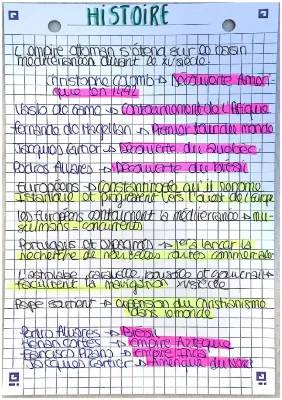 HISTOIRE
L'empire ottoman s'étend sur le bassin
méditerranéen durant le XVe siècle.
Christophe Colomb → Découverte Amér-
ique en 1492
Vasco de Gama → Contournement de l'Afrique
Fernando de Magellan → Premier tour du monde
Jacques Cartier → Découverte du Québec
Pedros Alvares → Découverte du Brésil
Européens → Constantinople qu'il nomme
Istanbul et progressent vers l'ouest de l'Europe
Les Européens contournent la méditerranée → mu-
sulmans = concurrents
Portugais et espagnols → 1er à lancer la
recherche de nouvelles routes commerciales
L'astrolabe, caravelle, boussole et gouvernail →
facilitent la navigation XVe siècle
Pape soutient → expansion du christianisme
dans le monde
Pedro Alvares → Brésil
Hernan Cortés → Empire Aztèque
Francisco Pizarro → Empire Inca
Jacques Cartier → Amérique du Nord